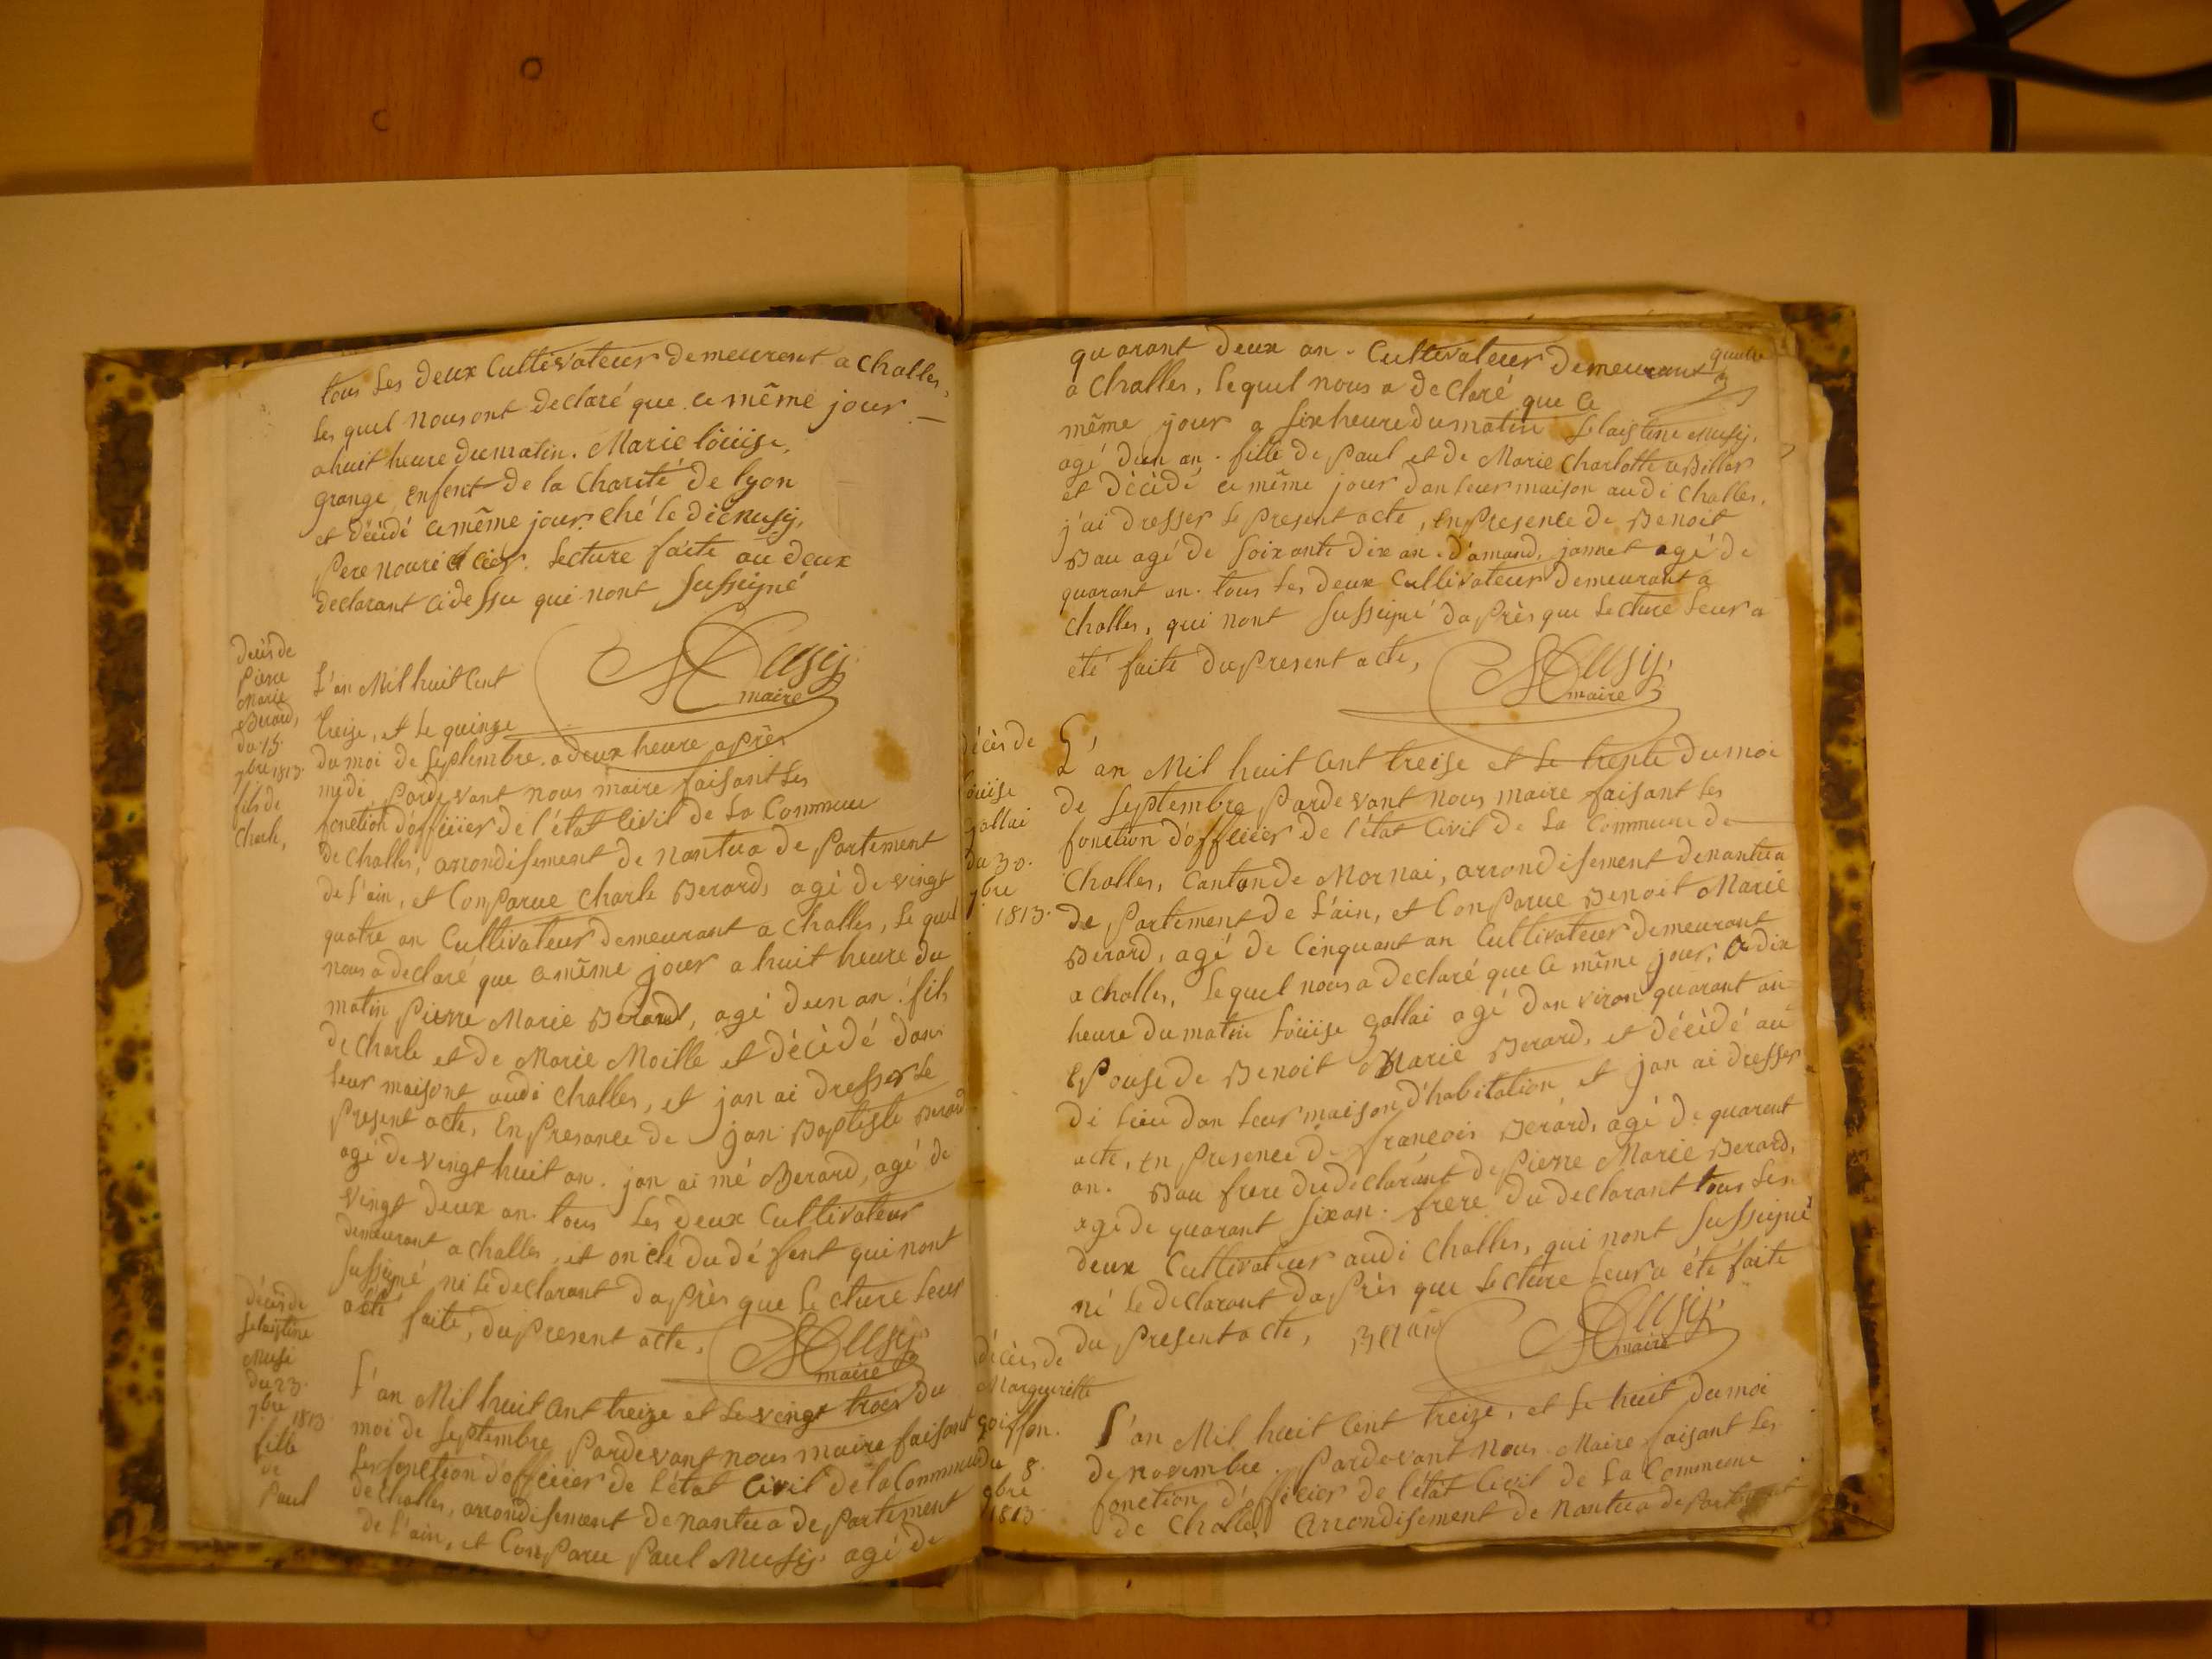 tous Les deux Cultivateur demeurent a Challes,
Les quel nous ont declaré que ce même jour —
a huit heure du matin. Marie loüise,
grange, enfent de la Charité de lyon
et décidé ce même jour. ché le dit musy,
pere nouricier. Lecture faite au deux
declarant cidessu qui nont sussigné
Musy,
maire
décès de
Pierre
Marie
Berard,
du 15.
7bre 1813.
fils de
Charle,
L'an Mil huit Cent
treize, et Le quinze
du moi de Septembre. a deux heure après
midi pardevant nous maire faisant Les
fonction d'officiier de l'état Civil de La Commune
de Challes, arrondisement de nantua de partement
de l'ain, et Comparue Charle Berard, agé de vingt
quatre an Cultivateur demeurant a Challes, Le quel
nous a declaré que ce même jour a huit heure du
matin pierre Marie Berard, agé dun an. fils
de Charle et de Marie Moille et décédé dans
Leur maisont audi Challes, et jan ai dresser Le
present acte, En presance de jan Baptiste Berard
agé de vingt huit an. jan ai mé Berard, agé de
vingt deux an tous Les deux Cultivateur
demeurant a Challes, et oncle du dé fent qui nont
sussigné ni Le declarant da près que Lecture Leur
a été faite, du present acte.
Musy,
maire
décès de
Selaistine
Musi
du 23.
7bre 1813
fille
de
Paul
L'an Mil huit Cent treize et Le vingt trois du
moi de Septembre, pardevant nous maire faisant
Les fonction d'officiier de L'état Civil de la Commune
de Challes, arrondisement de nantua de partement
de l'ain, et Comparu Paul Musy, agé de
quatre
quarant deux an. Cultivateur demeurant
a Challes, Lequel nous a declaré que Ce
même jour a six heure du matin Selaistine Musy,
agé dun an. fille de paul et de Marie Charlotte
et décédé ce même jour dan Leur maison audi Challes.
j'ai dresser Le present acte, en presence de Benoit
Bau agé de soixante dix an. d'amand, jannet agé de
quarant an. tous Les deux Cultivateur demeurant a
Challes, qui nont sussigné da près que Lecture Leur a
été faite du present acte,
Musy,
maire
décès de
loüise
gallai
du 30.
7bre
1813.
L'an Mil huit Cent treise et Le trente du moi
de Septembre pardevant nous maire faisant Les
fonction d'officiier de l'état Civil de La Commune de
Challes, Canton de Mornai, arrondisement de nantua
de partement de L'ain, et Comparue Benoit Marie
Berard, agé de Cinquant an Cultivateur demeurant
a Challes, Lequel nous a declaré que Ce même jour, a dix
heure du matin Loüise gallai agé dan viron quarant an
Epouse de Benoit Marie Berard, et décédé au
di Lieu dan Leur maison d'habitation et jan ai dresser
acte, en presence de francois Berard, agé de quarent
an. Bau frere du declarant de pierre Marie Berard,
agé de quarant six an. frere du declarant tous Les
deux Cultivateur audi Challes, qui nont sussigné
ni Le declarant da près que Lecture Leur a été faite
du present acte,
Musy,
maire
décès de
Marguerite
goiffon.
du 8.
9bre
1813
L'an Mil huit Cent treize, et Le huit du moi
de novembre. pardevant nous Maire faisant Les
fonction d'officier de l'état Civil de La Commune
de Challes arrondisement de nantua de partement